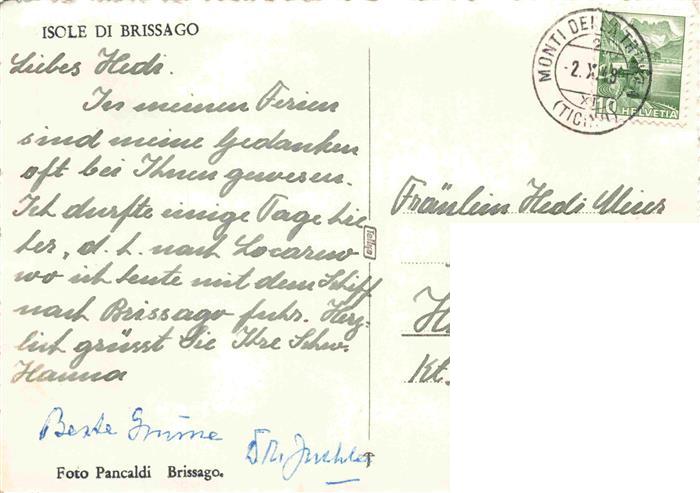 ISOLE DI BRISSAGO
Liebes Hedi.
In meinen Ferien
sind meine Gedanken
oft bei Ihnen gewesen.
Ich durfte einige Tage hie
her, d. h. nach Locarno
wo ich heute mit dem Schiff
nach Brissago fuhr. Herz-
lich grüsst Sie Ihre Schw.
Hanna
Beste Grüsse
Foto Pancaldi Brissago.
MONTI DELLA
2. X. 48
(TICINO)
10
HELVETIA
Fräulein Hedi Meier
Kt.